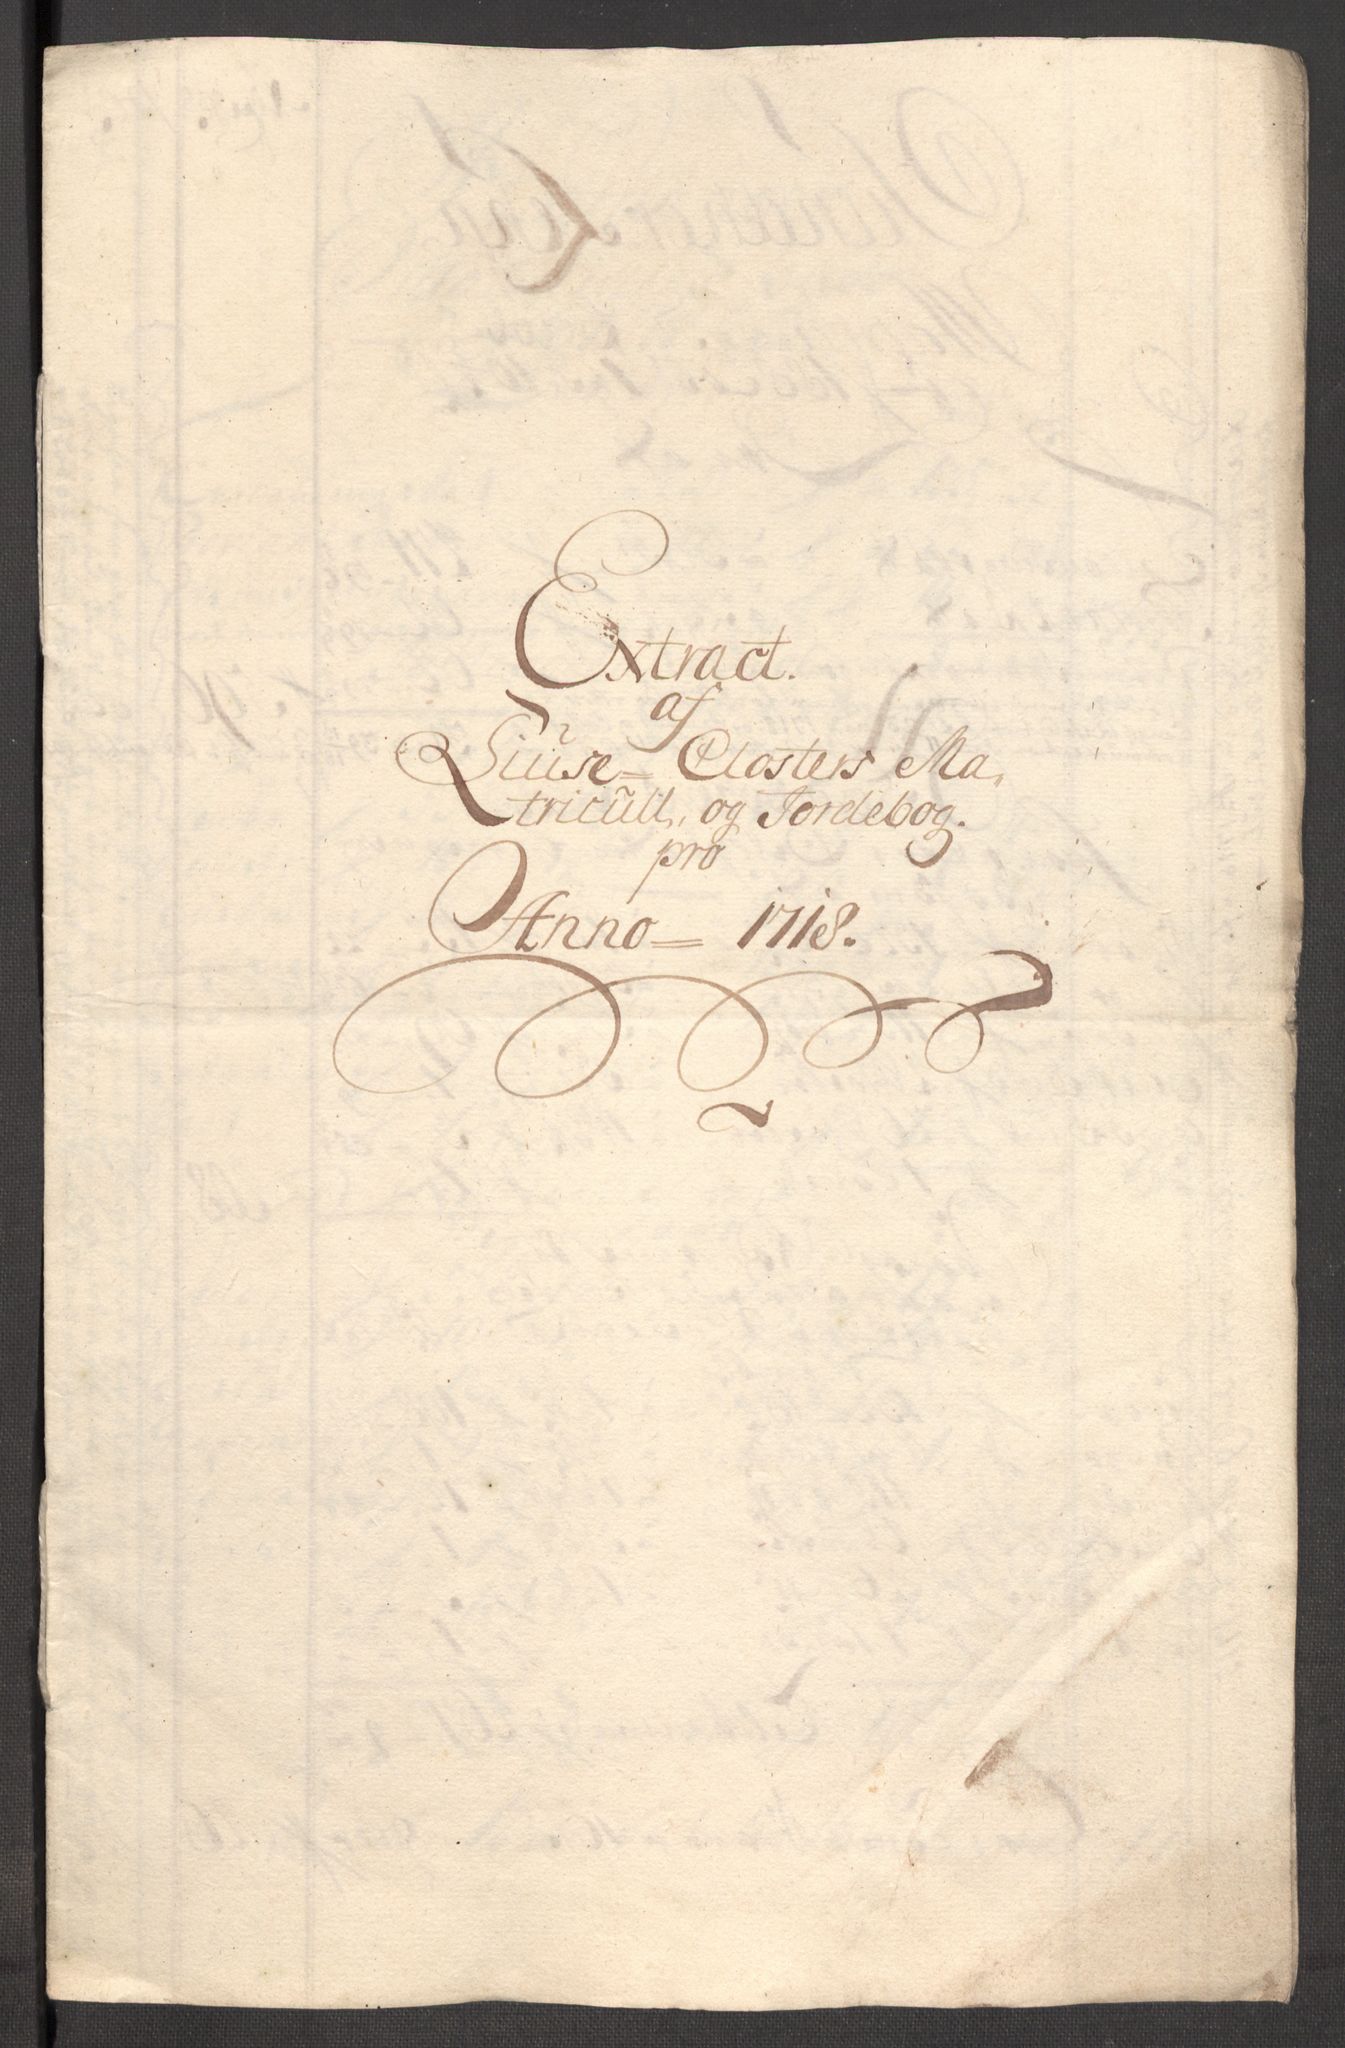 Extract.
af
Liüse= Closters Ma,
tricüll, og Jordebog.
pro
Anno= 1718.